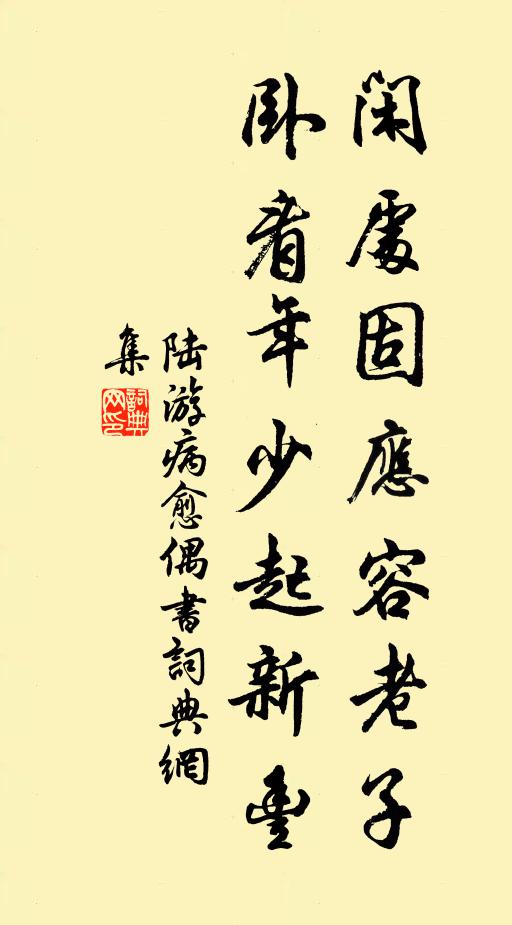 閑處固應容老子
卧看年少起新豐
陸游病愈偶書詞典網
集
詞典
网印